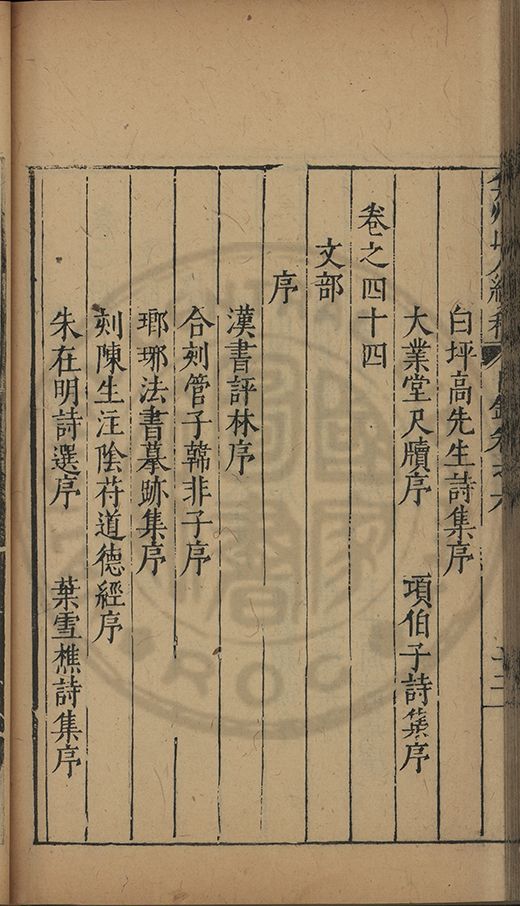 白坪高先生詩集序
大業堂尺牘序 項伯子詩集序
卷之四十四
文部
序
漢書評林序
合刻管子韓非子序
瑯琊法書摹跡集序
刻陳生注陰苻道德經序
朱在明詩選序 葉雪樵詩集序